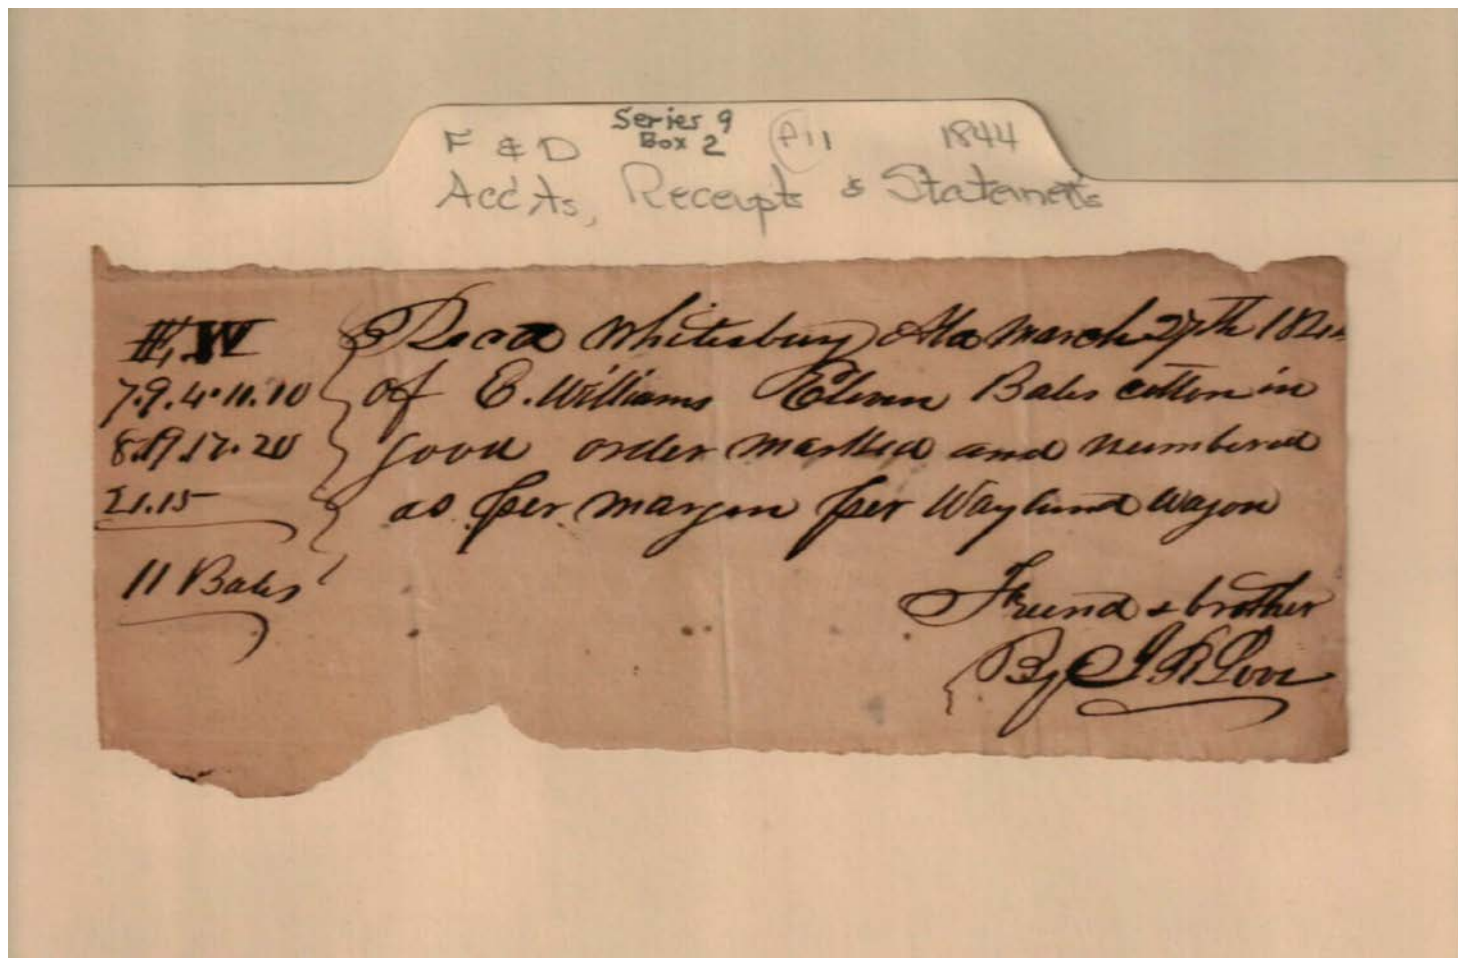 Series 9
F & D Box 2 1844
Acc'ts, Receipts & Statements
E, W
7.9.4.11.10
8.19.17.20
21.15
11 Bales
Recd Whitesburg Ala March 27th
of E. Williams Eleven Bales cotton in
good order marked and numbered
as per margin per Waylund Wagon
Freend & brother
By Love